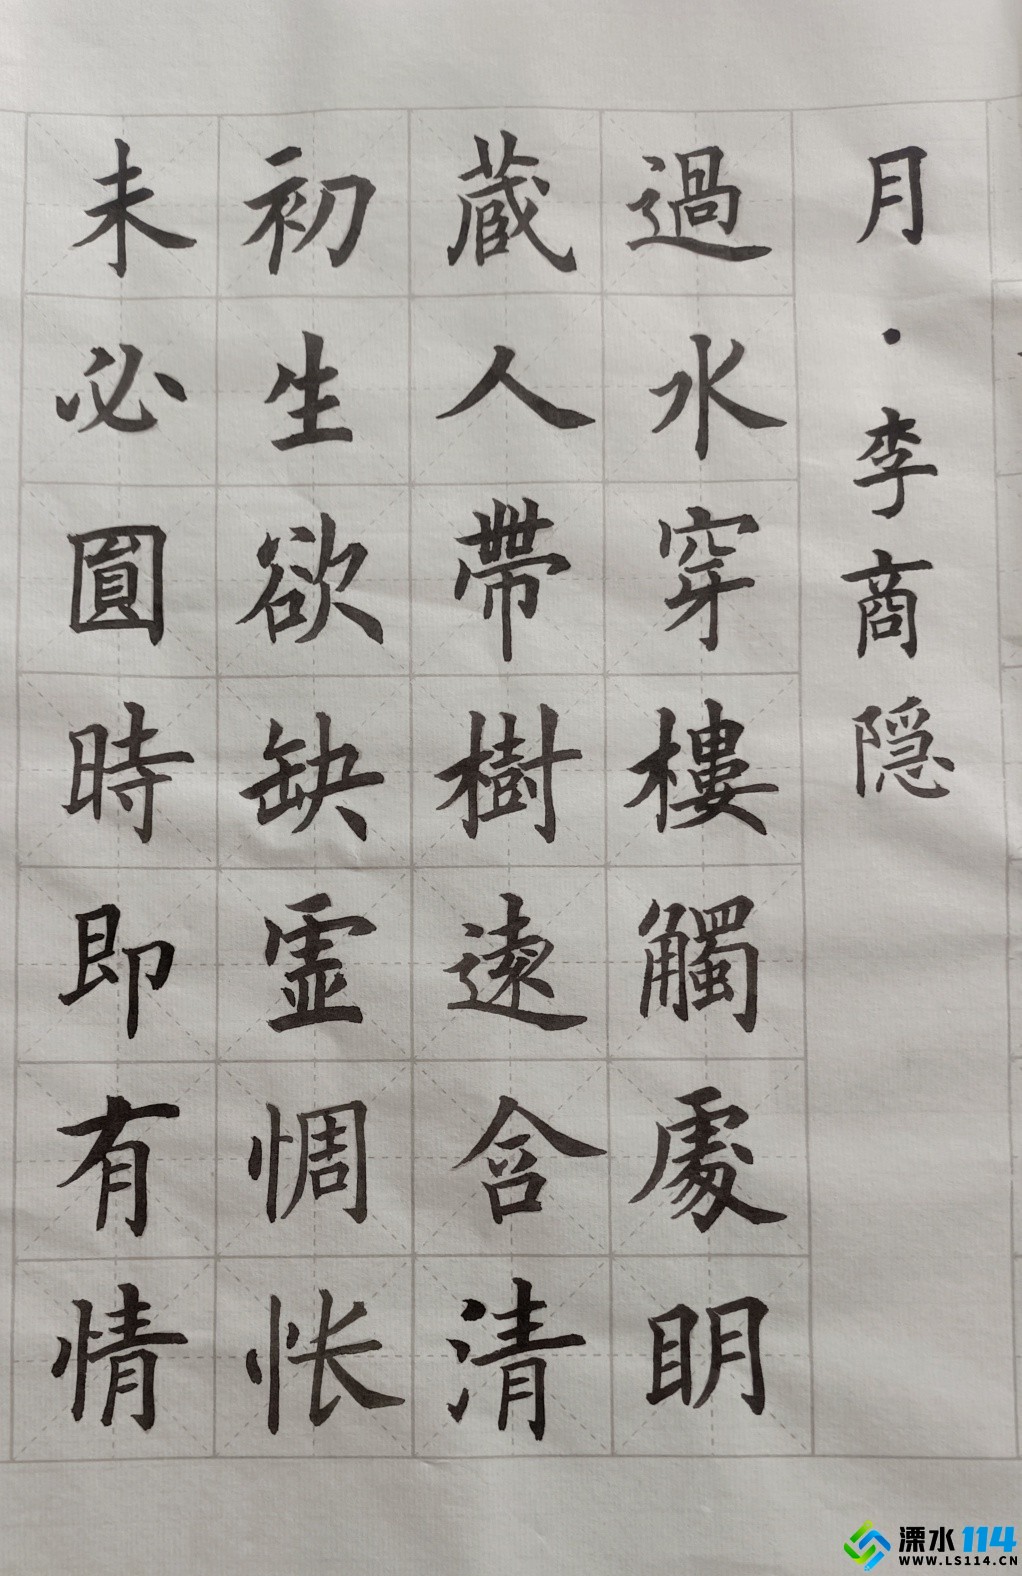 月·李商隐
過水穿樓觸處明
蔵人帶樹遠含清
初生欲缺霊惆怅
未必圓時即有情
溧水114
WWW.LS114.CN